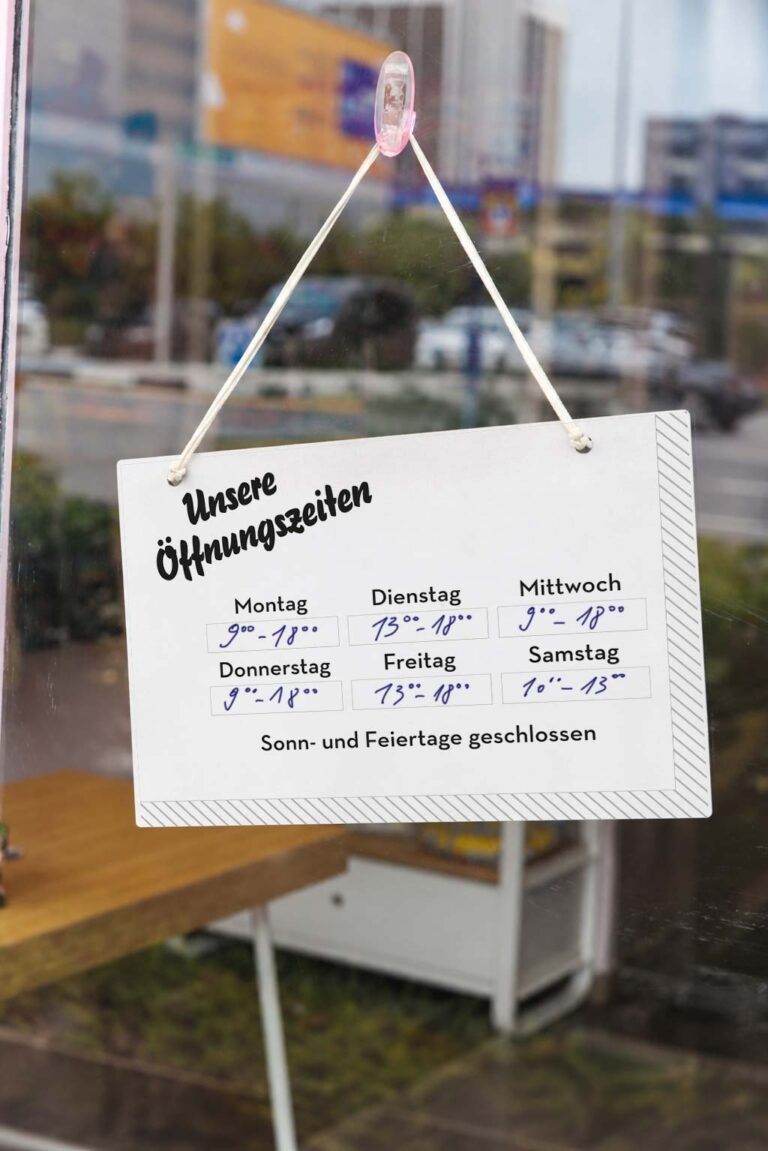 Unsere
Öffnungszeiten
Montag Dienstag Mittwoch
9⁰⁰-18⁰⁰ 13⁰⁰-18⁰⁰ 9⁰⁰-18⁰⁰
Donnerstag Freitag Samstag
9⁰⁰-18⁰⁰ 13⁰⁰-18⁰⁰ 10⁰⁰-13⁰⁰
Sonn- und Feiertage geschlossen